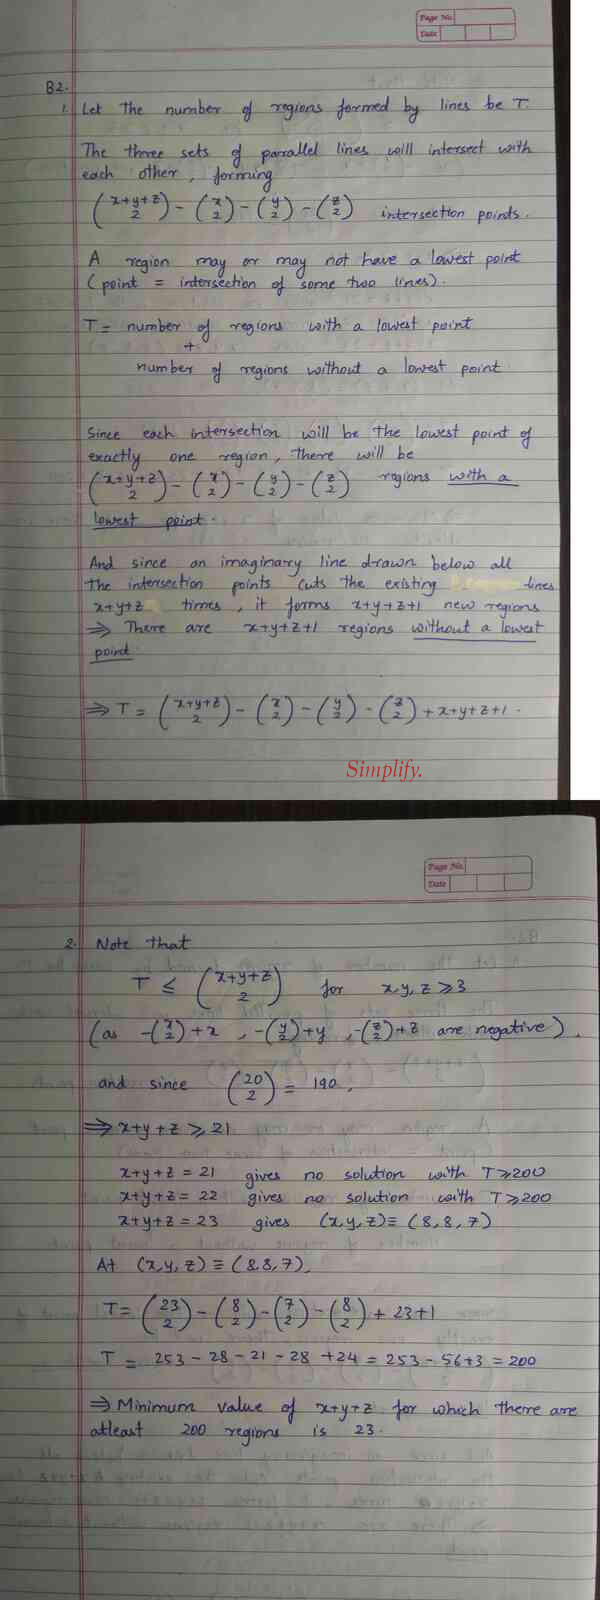 Page No.
Date
B2.
1. Let the number of regions formed by lines be T.
The three sets of parallel lines will intersect with
each other, forming
(x+y+z 2) - (x 2) - (y 2) - (z 2) intersection points.
A region may or may not have a lowest point
(point = intersection of some two lines).
T = number of regions with a lowest point
+
number of regions without a lowest point.
Since each intersection will be the lowest point of
exactly one region, there will be
(x+y+z 2) - (x 2) - (y 2) - (z 2) regions with a
lowest point.
And since an imaginary line drawn below all
the intersection points cuts the existing lines
x+y+z times, it forms x+y+z+1 new regions
⇒ There are x+y+z+1 regions without a lowest
point.
⇒ T = (x+y+z 2) - (x 2) - (y 2) - (z 2) + x+y+z+1.
Simplify.
Page No.
Date
2. Note that
T ≤ (x+y+z 2) for x,y,z ≥ 3
(as -(x 2)+x, -(y 2)+y, -(z 2)+z are negative).
and since (20 2) = 190,
⇒ x+y+z ≥ 21
x+y+z = 21 gives no solution with T≥200
x+y+z = 22 gives no solution with T≥200
x+y+z = 23 gives (x,y,z) ≡ (8,8,7)
At (x,y,z) ≡ (8,8,7),
T = (23 2) - (8 2) - (7 2) - (8 2) + 23+1
T = 253 - 28 - 21 - 28 + 24 = 253 - 56+3 = 200
⇒ Minimum value of x+y+z for which there are
atleast 200 regions is 23.